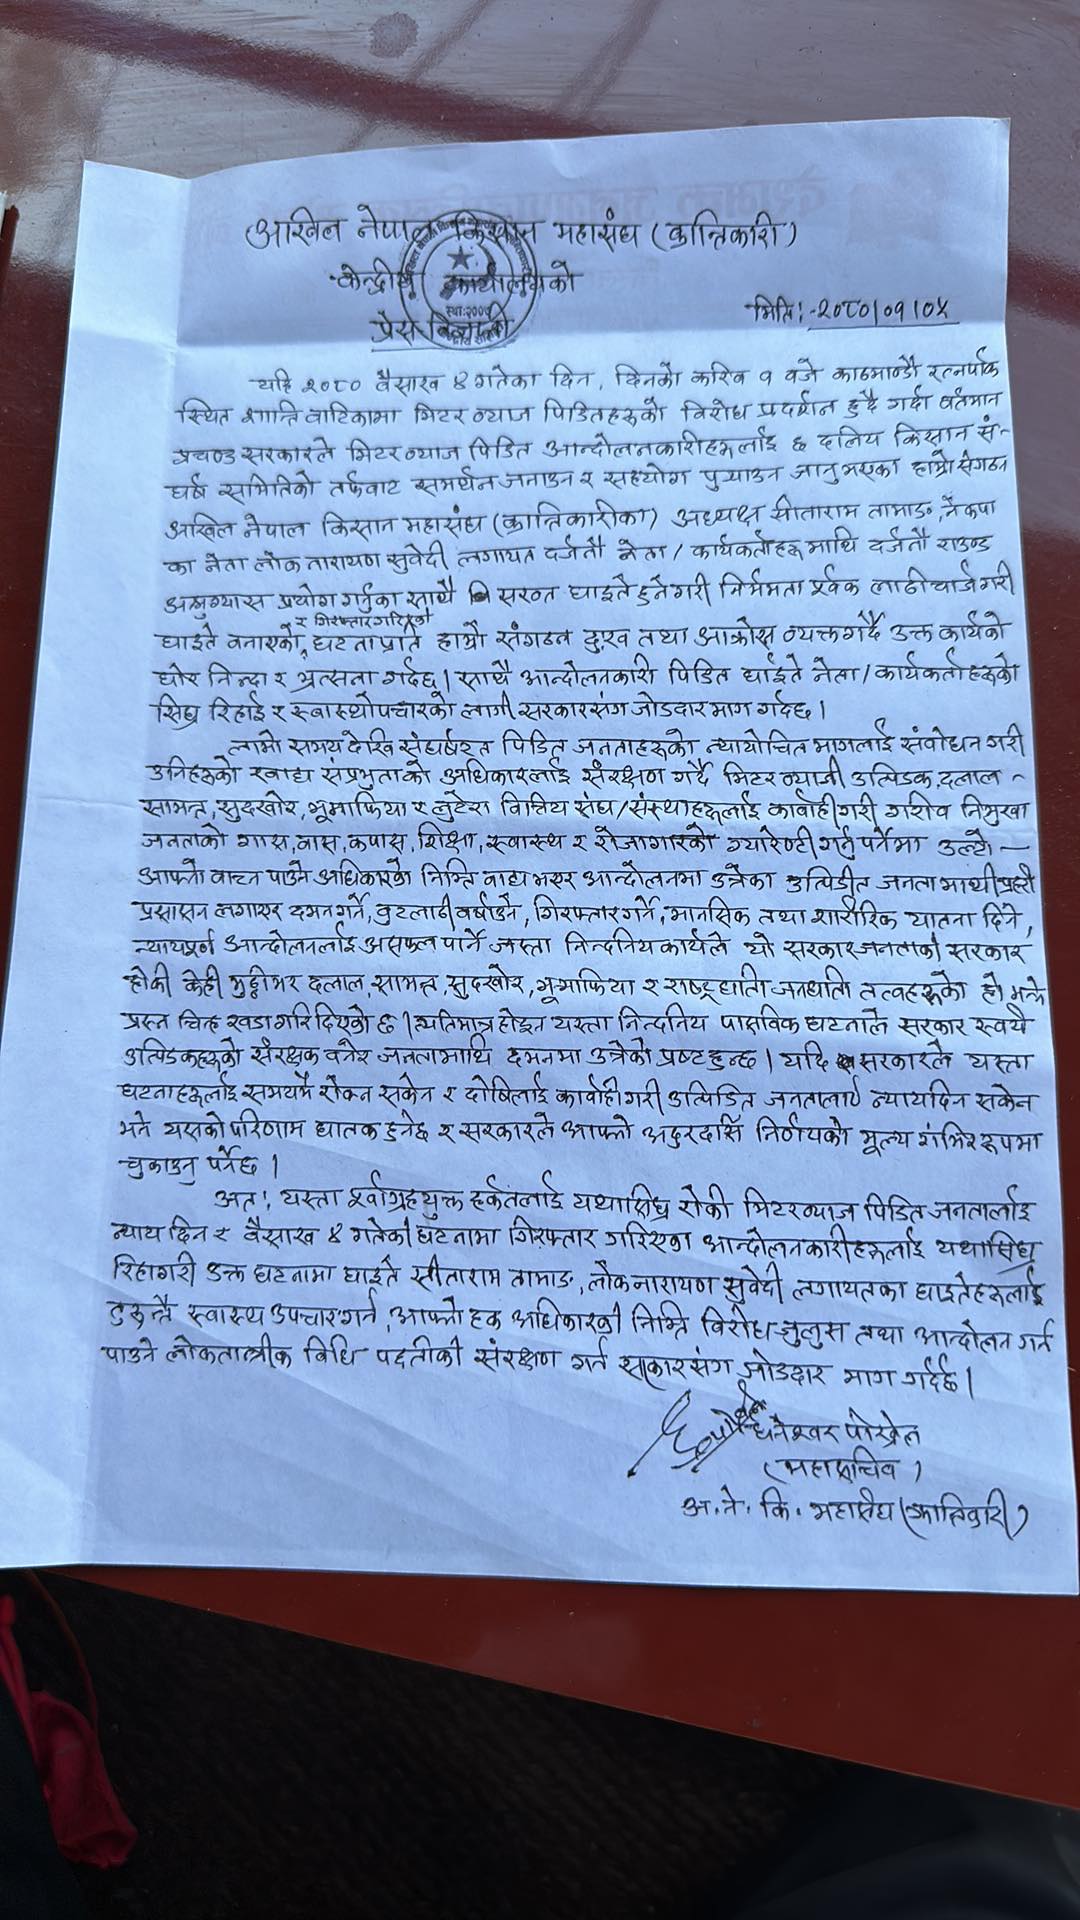 अखिल नेपाल किसान महासंघ (क्रान्तिकारी)
केन्द्रीय कार्यालयको
प्रेस विज्ञप्ती
स्था:२००७
मिति:-२०८०।०१।०५
यहि २०८० वैसाख ४ गतेका दिन, दिनको करिव १ वजे काठमाण्डौ रत्नपार्क
स्थित शान्ति वाटिकामा मिटर व्याज पिडितहरुको विरोध प्रदर्शन हुदै गर्दा वर्तमान
प्रचण्ड सरकारले मिटर व्याज पिडित आन्दोलनकारीहरुलाई ६ दलिय किसान सं-
घर्ष समितिको तर्फवाट समर्थन जनाउन र सहयोग पुर्‍याउन जानुभएका हाम्रो संगठन
अखिल नेपाल किसान महासंघ (क्रान्तिकारीका) अध्यक्ष सीताराम तामाङ, नेकपा
का नेता लोक नारायण सुवेदी लगायत दर्जनौ नेता/कार्यकर्ताहरु माथि दर्जनौ राउण्ड
अश्रुग्यास प्रयोग गर्नुका साथै सख्त घाइते हुनेगरी निर्ममता पूर्वक लाठी चार्ज गरी
र गिरफ्तार गरिएको
घाइते वनाएको घटनाप्रति हाम्रो संगठन दुःख तथा आक्रोस व्यक्त गर्दै उक्त कार्यको
घोर निन्दा र भ्रत्सना गर्दछ। साथै आन्दोलनकारी पिडित घाईते नेता/कार्यकर्ताहरुको
सिघ्र रिहाई र स्वास्थोपचारको लागी सरकारसंग जोडदार माग गर्दछ।
लामो समय देखि संघर्षरत पिडित जनताहरुको न्यायोचित मागलाई संवोधन गरी
उनिहरुको खाद्य संप्रभुताको अधिकारलाई संरक्षण गर्दै मिटर व्याजी उत्पिडक, दलाल-
सामन्त, सुदखोर, भूमाफिया र लुटेरा वित्तिय संघ/संस्थाहरुलाई कार्वाही गरी गरीव निमुखा
जनताको गास, वास, कपास, शिक्षा, स्वास्थ र रोजगारको ग्यारेण्टी गर्नु पर्नेमा उल्टो-
आफ्नो वाच्न पाउने अधिकारको निम्ति वाध्य भएर आन्दोलनमा उत्रेका उत्पिडीत जनता माथी प्रहरी
प्रसासन लगाएर दमन गर्ने, वुट लाठी वर्षाउने, गिरफ्तार गर्ने, मानसिक तथा शारीरिक यातना दिने,
न्यायपूर्ण आन्दोलनलाई असफल पार्ने जस्ता निन्दनिय कार्यले यो सरकार जनताको सरकार
होकी केही मुठ्ठीभर दलाल, सामन्त, सुदखोर, भूमाफिया र राष्ट्रघाती जनघाती तत्वहरुको हो भन्ने
प्रस्न चिन्ह खडा गरिदिएको छ। त्यतिमात्र होइन यस्ता निन्दनिय पासविक घटनाले सरकार स्वयं
उत्पिडकहरुको संरक्षक वनेर जनतामाथि दमनमा उत्रेको प्रष्ट हुन्छ। यदि सरकारले यस्ता
घटनाहरुलाई समयमै रोक्न सकेन र दोषिलाई कार्वाही गरी उत्पिडित जनतालाई न्याय दिन सकेन
भने यसको परिणाम घातक हुनेछ र सरकारले आफ्नो अदुरदर्सि निर्णयको मूल्य गंभिर रुपमा
चुकाउनु पर्नेछ।
अत: यस्ता पूर्वाग्रहयुक्त हर्कतलाई यथासिघ्र रोकी मिटर व्याज पिडित जनतालाई
न्याय दिन र वैसाख ४ गतेको घटनामा गिरफ्तार गरिएका आन्दोलनकारीहरुलाई यथासिघ्र
रिहा गरी उक्त घटनामा घाइते सीताराम तामाङ, लोकनारायण सुवेदी लगायतका घाइतेहरुलाई
तुरुन्तै स्वास्थ उपचार गर्न, आफ्नो हक अधिकारको निम्ति विरोध जुलुस तथा आन्दोलन गर्न
पाउने लोकतान्त्रीक विधि पद्दतीको संरक्षण गर्न सरकारसंग जोडदार माग गर्दछ।
धनेश्वर पोखरेल
(महासचिव)
अ.ने.कि.महासंघ (क्रान्तिकारी)